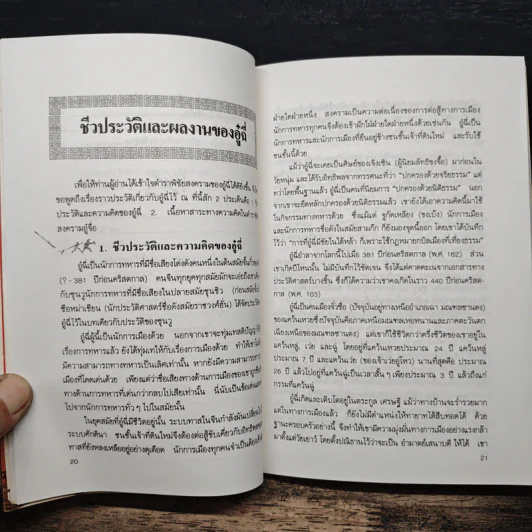 ชีวประวัติและผลงานของอู๋ฉี่
เพื่อให้ท่านผู้อ่านได้เข้าใจตำราพิชัยสงครามของอู๋ฉี่ได้ดียิ่งขึ้น
ขอพูดถึงเรื่องราวประเภทเกี่ยวกับอู๋ฉี่ไว้ ณ ที่นี้สัก 2 ประเด็นคือ 1
ประวัติและความคิดของอู๋ฉี่ 2. เนื้อหาสาระทางความคิดในตำรา
สงครามอู๋จื่อ
1. ชีวประวัติและความคิดของอู๋ฉี่
อู๋ฉี่เป็นนักการทหารที่มีชื่อเสียงโด่งดังคนหนึ่งในต้นสมัย
(? - 381 ปีก่อนคริสตกาล) คนจีนทุกยุคทุกสมัยมักจะเอ่ยถึง
กับซุนวู นักการทหารที่มีชื่อเสียงในปลายสมัยชุนชิว
ชื่อหม่าเซียน (นักประวัติศาสตร์ชื่อดังสมัยราชวงศ์ฮั่น) ได้จัด
อู๋ฉี่ไว้ในบทเดียวกับประวัติของซุนวู
อู๋ฉี่ผู้นี้มีความเป็นมาด้วย นอกจากเขาจะทุ่มเทสติปัญญา
เรื่องการทหารแล้ว ยังได้ทุ่มเทให้กับเรื่องการเมืองด้วย
มีความสามารถทางทหารเป็นเลิศเท่านั้น หากยังมีความสามารถ
ทางด้านการทหารที่เด่นกว่ากลบไปเสียเท่านั้น
ไปจากนักการทหารทั่ว ๆ ไปในสมัยนั้น
ในยุคสมัยที่อู๋ฉี่มีชีวิตอยู่นั้น ระบบทาสในจีนกำลังผันเปลี่ยน
ระบบศักดินา ชนชั้นเจ้าที่ดินใหม่จึงต้องต่อสู้ขับเคี่ยวกับอิทธิพล
ทาสที่ยังหลงเหลืออยู่อย่างดุเดือด นักการเมืองทุกคนจำเป็นต้อง
20
ฝ่ายใดฝ่ายหนึ่ง สงครามเป็นความต่อเนื่องของการต่อสู้ทางการเมือง
นักการทหารทุกคนจึงต้องเข้าฝักใฝ่ฝ่ายใดฝ่ายหนึ่งด้วยเช่นกัน อู๋ฉี่เป็น
นักการทหารและนักการเมืองที่ยืนอยู่ข้างชนชั้นเจ้าที่ดินใหม่ และรับใช้
ชนชั้นนี้ด้วย
แม้ว่าอู๋ฉี่จะเคยเป็นศิษย์ของเจิงเซิน (ผู้นิยมลัทธิของจื๊อ) มาก่อนใน
วัยหนุ่ม และได้รับอิทธิพลจากทรรศนะที่ว่า "ปกครองด้วยจริยธรรม" แต่
ทว่าโดยพื้นฐานแล้ว อู๋ฉี่เป็นคนที่นิยมการ "ปกครองด้วยนิติธรรม" นอก
จากเขาจะยึดหลักปกครองด้วยนิติธรรมแล้ว เขายังได้เอาความคิดนี้มาใช้
ในกิจกรรมทางทหารด้วย ซึ่งแม้แต่ จูกัดเหลียง (ขงเบ้ง) นักการเมือง
และนักการทหารชื่อดังในสมัยสามก๊ก ก็ยังมองจุดนี้ออก โดยเขาได้บันทึก
ไว้ว่า "การที่อู๋ฉี่มีชัยในใต้หล้า ก็เพราะใช้กฎหมายกปิลเมืองที่เที่ยงธรรม"
อู๋ฉี่อำลาจากโลกนี้ไปเมื่อ 381 ปีก่อนคริสตกาล (พ.ศ. 162) ส่วน
เขาเกิดปีไหนนั้น ไม่มีบันทึกไว้ชัดเจน จึงได้แต่คาดคะเนจากเอกสารทาง
ประวัติศาสตร์บางชิ้น ซึ่งก็คงประมาณว่าเขาเกิดในราว 440 ปีก่อนคริสต
กาล (พ.ศ. 103)
อู๋ฉี่เป็นคนเมืองจั่วซื่อ (ปัจจุบันอยู่ทางเหนืออำเภอเฉา มณฑลซานตง)
ของแคว้นเหวยซึ่งปัจจุบันคือภาคเหนือมณฑลเหอหนานและภาคตะวันตก
เฉียงเหนือของมณฑลซานตง) แต่เขาก็ใช้ชีวิตกว่าครึ่งชีวิตของเขาอยู่ใน
แคว้นหลู่, เว่ย และฉู่ โดยอยู่ที่แคว้นเหวยประมาณ 24 ปี แคว้นหลู่
ประมาณ 7 ปี และแคว้นเว่ย (ของเจ้าเว่ยอู่โหว) นานที่สุดคือ ประมาณ
26 ปี แล้วไปอยู่ที่แคว้นฉู่เป็นเวลาสั้น ๆ เพียงประมาณ 3 ปี แล้วถึงแก่
กรรมที่แคว้นฉู่
อู๋ฉี่เกิดและเติบโตอยู่ในตระกูล เศรษฐี แม้ว่าทางบ้านจะร่ำรวยมาก
แต่ในทางการเมืองแล้ว ก็ยังไม่มีตำแหน่งให้ทายาทได้สืบทอดได้ ด้วย
ฐานะครอบครัวอย่างนี้ จึงทำให้เขามีความมุ่งมั่นทางการเมืองอย่างแรงกล้า
มาตั้งแต่วัยเยาว์ โดยตั้งปณิธานไว้ว่าจะเป็น อำมาตย์เสนาบดี ให้ได้ เขา
21